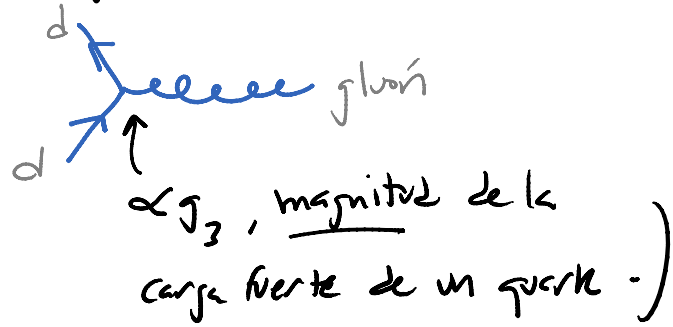 d
gluón
d
∝ g₃, magnitud de la
carga fuerte de un quark.)